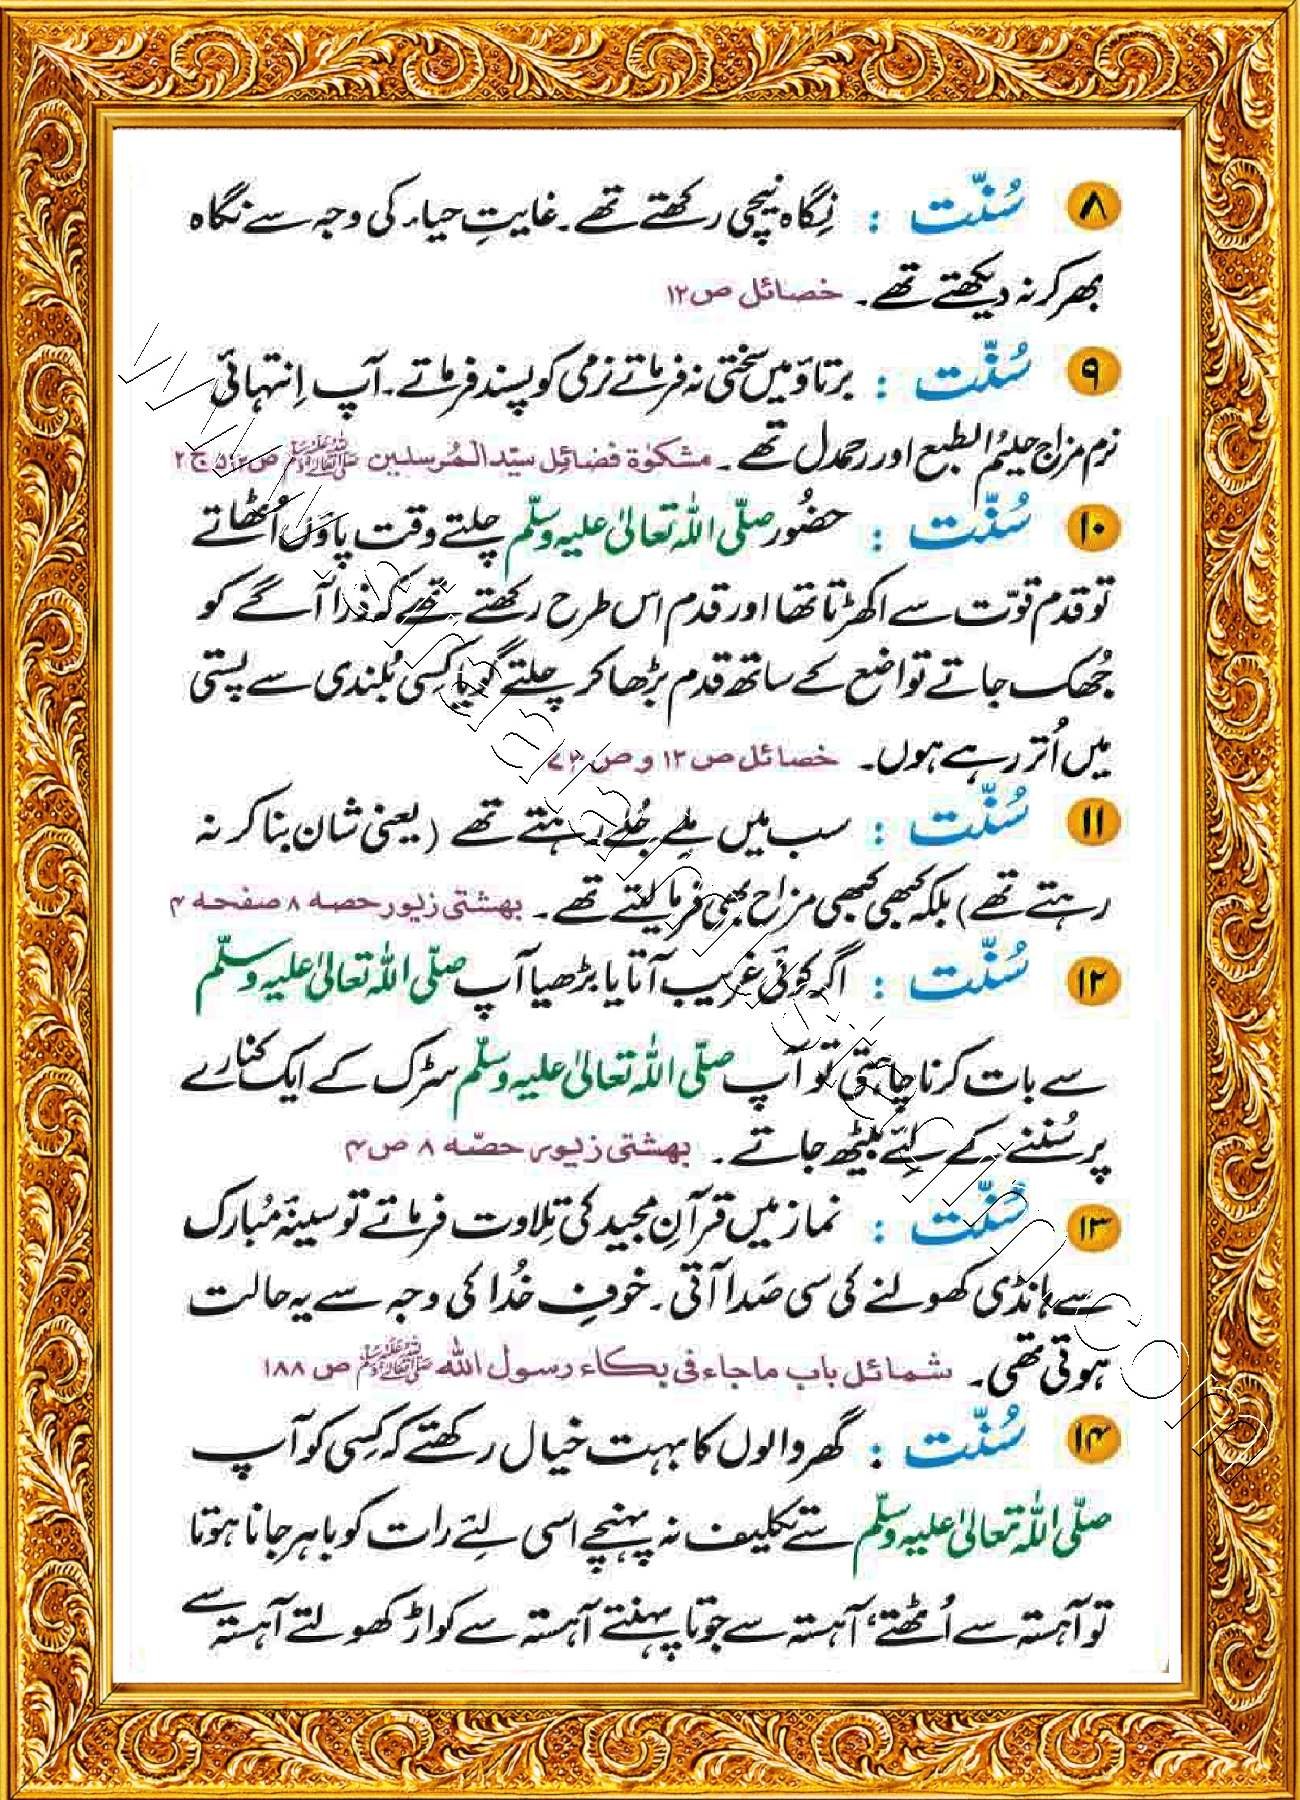 ۸ سُنّت : نِگاہ نیچی رکھتے تھے۔ غایتِ حیاء کی وجہ سے نگاہ
بھر کر نہ دیکھتے تھے۔ خصائل ص۱۲
۹ سُنّت : برتاؤ میں سختی نہ فرماتے نرمی کو پسند فرماتے۔ آپ اِنتہائی
نرم مزاج حلیمُ الطبع اور رحمدل تھے۔ مشکوٰۃ فضائِل سیّد المُرسلین ﷺ ص ج ۲
۱۰ سُنّت : حضُور صلّی اللہ تعالیٰ علیہ وسلّم چلتے وقت پاؤں اُٹھاتے
تو قدم قوّت سے اکھڑتا تھا اور قدم اس طرح رکھتے تھے کہ ذرا آگے کو
جُھک جاتے تواضع کے ساتھ قدم بڑھا کر چلتے گویا کِسی بُلندی سے پستی
میں اُتر رہے ہوں۔ خصائل ص ۱۲ و ص ۷۳
۱۱ سُنّت : سب میں مِلے جُلے رہتے تھے (یعنی شان بنا کر نہ
رہتے تھے) بلکہ کبھی کبھی مزاح بھی فرما لیتے تھے۔ بهشتی زیور حصه ۸ صفحه ۴
۱۲ سُنّت : اگر کوئی غریب آتا یا بڑھیا آپ صلّی اللہ تعالیٰ علیہ وسلّم
سے بات کرنا چاہتی تو آپ صلّی اللہ تعالیٰ علیہ وسلّم سڑک کے ایک کنارے
پر سُننے کے لِئے بیٹھ جاتے۔ بهشتی زیور حصّه ۸ ص ۴
۱۳ سُنّت : نماز میں قرآنِ مجید کی تِلاوت فرماتے تو سینۂ مُبارک
سے ہانڈی کھولنے کی سی صَدا آتی۔ خوفِ خُدا کی وجہ سے یہ حالت
ہوتی تھی۔ شمائل باب ماجاء فی بکاء رسول الله ﷺ ص ۱۸۸
۱۴ سُنّت : گھر والوں کا بہت خیال رکھتے کہ کِسی کو آپ
صلّی اللہ تعالیٰ علیہ وسلّم سے تکلیف نہ پہنچے اسی لِئے رات کو باہر جانا ہوتا
تو آہستہ سے اُٹھتے، آہستہ سے جوتا پہنتے آہستہ سے کواڑ کھولتے آہستہ سے